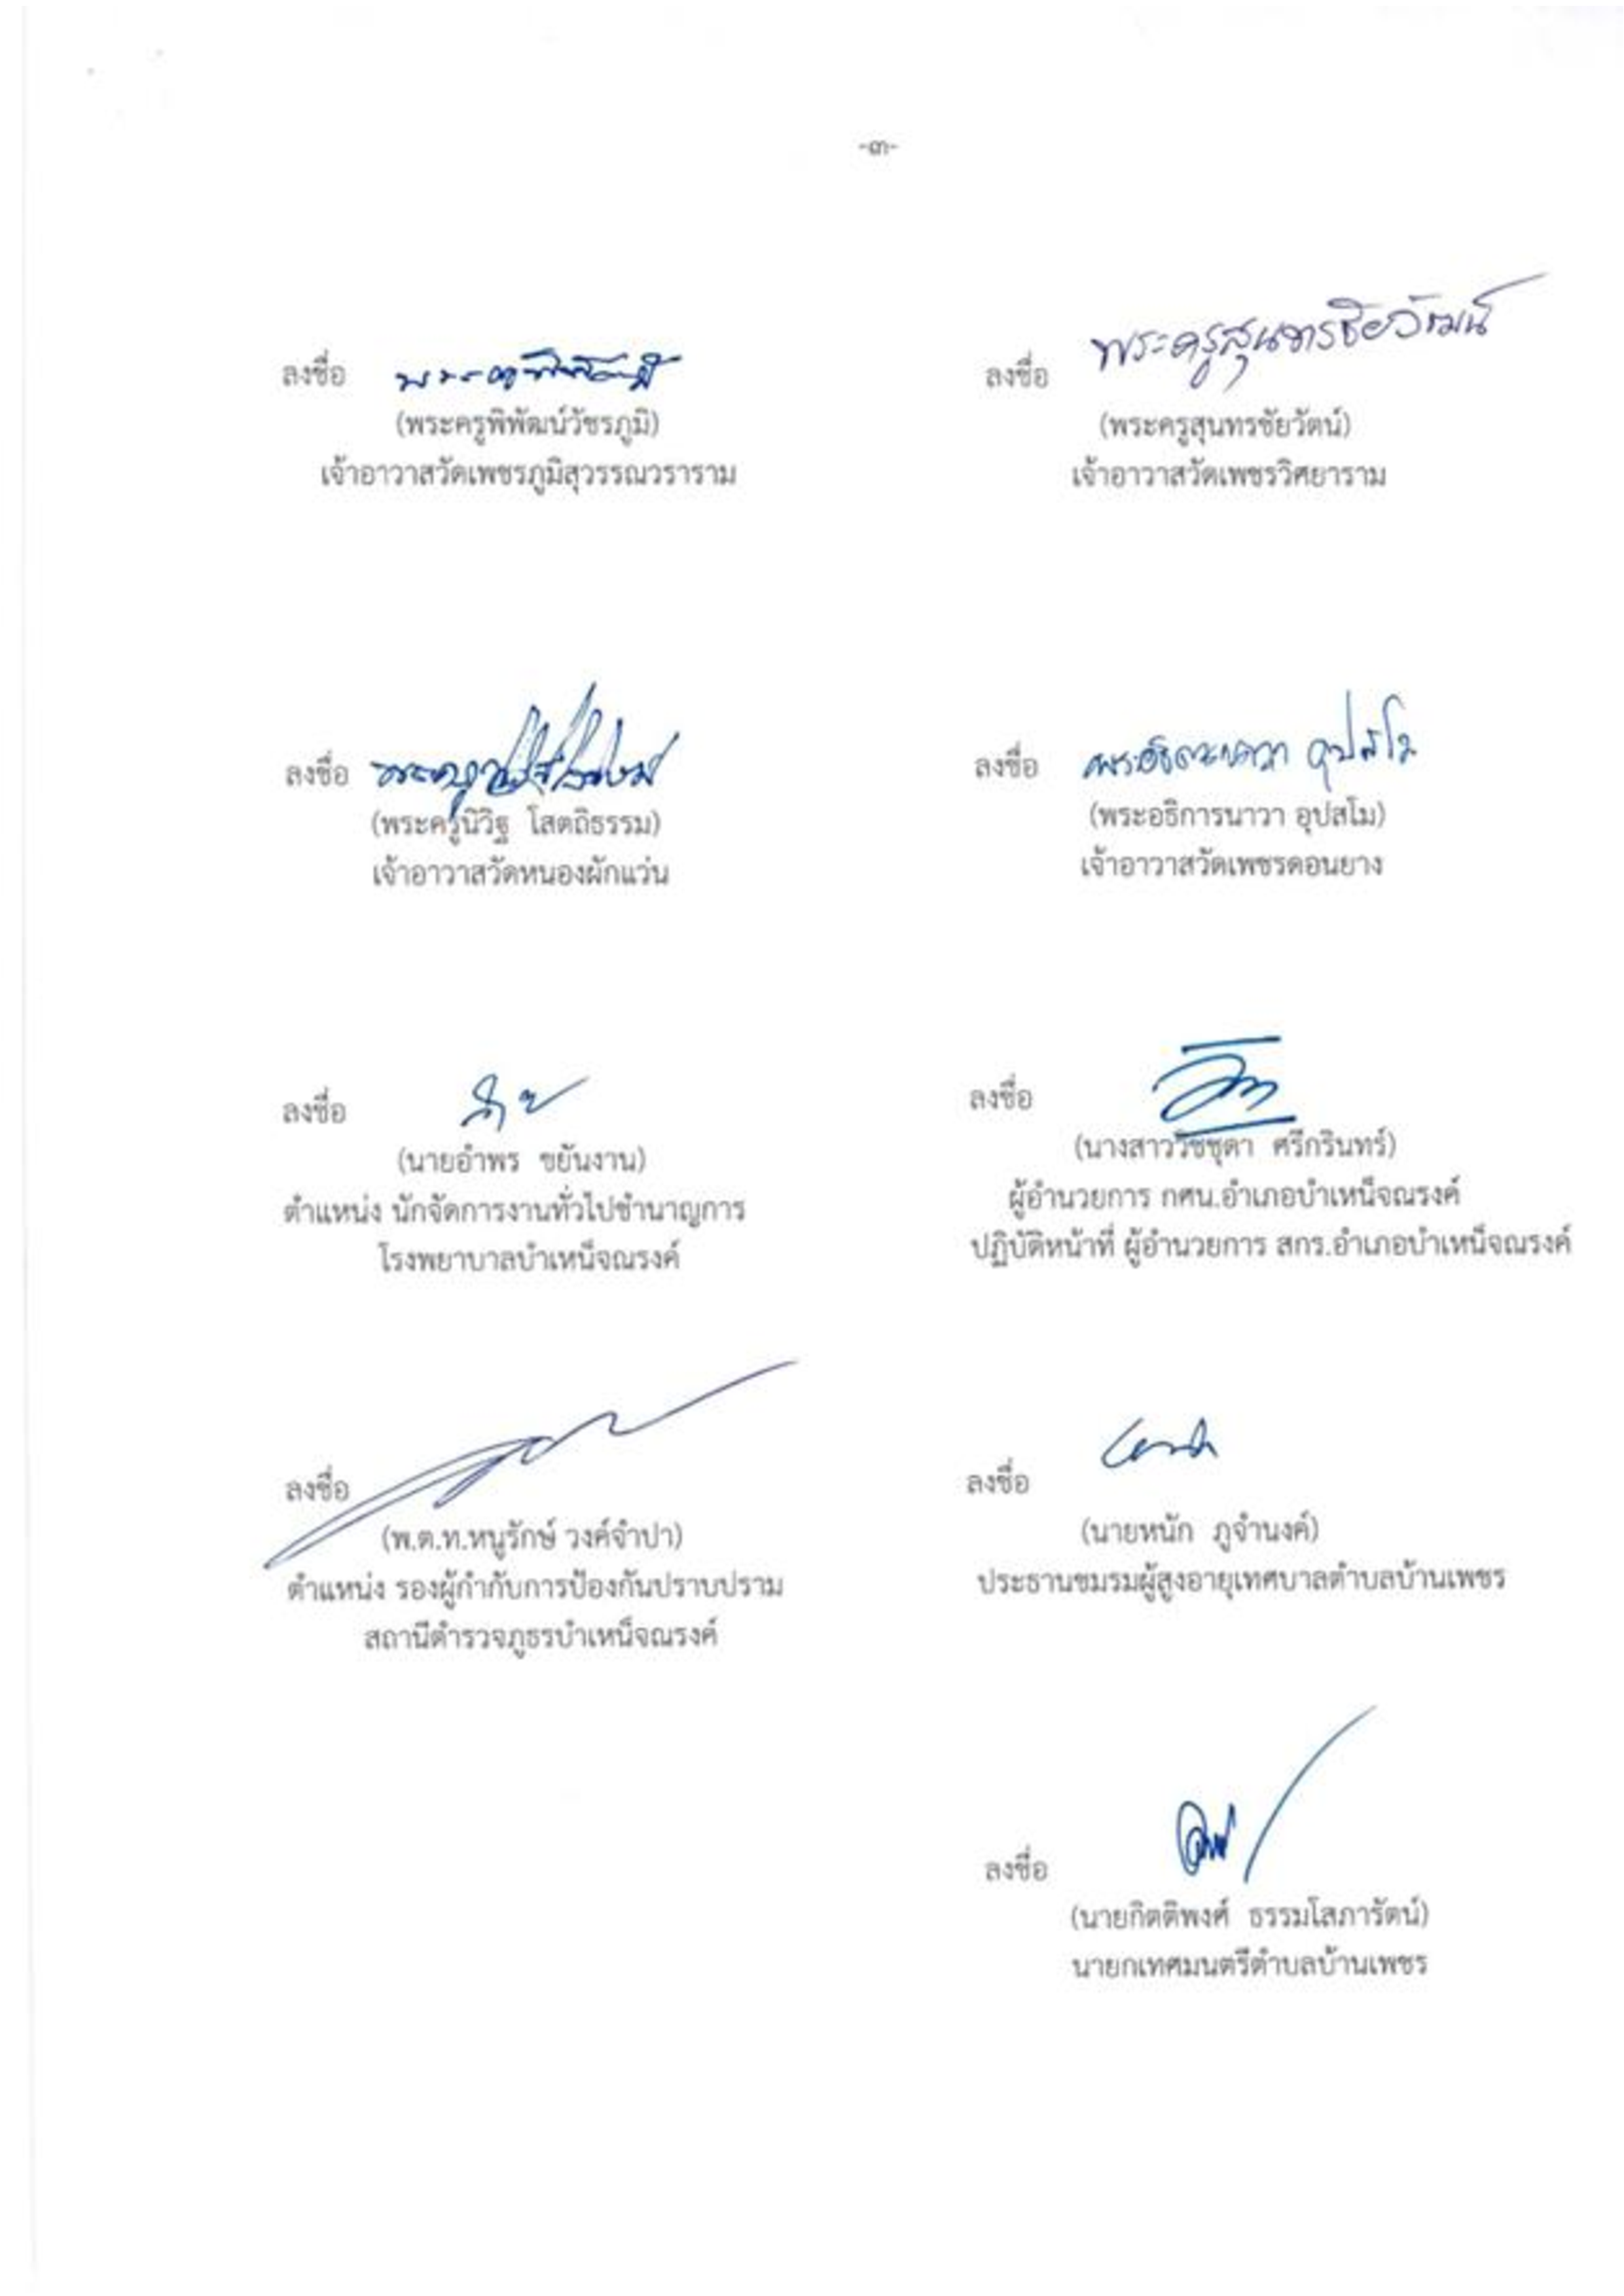 -๓-
ลงชื่อ
(พระครูพิพัฒน์วัชรภูมิ)
เจ้าอาวาสวัดเพชรภูมิสุวรรณวราราม
ลงชื่อ พระครูสุนทรชัยวัฒน์
(พระครูสุนทรชัยวัตน์)
เจ้าอาวาสวัดเพชรวิศยาราม
ลงชื่อ
(พระครูนิวิฐ โสตถิธรรม)
เจ้าอาวาสวัดหนองผักแว่น
ลงชื่อ พระอธิการนาวา อุปสโม
(พระอธิการนาวา อุปสโม)
เจ้าอาวาสวัดเพชรดอนยาง
ลงชื่อ
(นายอำพร ขยันงาน)
ตำแหน่ง นักจัดการงานทั่วไปชำนาญการ
โรงพยาบาลบำเหน็จณรงค์
ลงชื่อ
(นางสาววิชชุดา ศรีกรินทร์)
ผู้อำนวยการ กศน.อำเภอบำเหน็จณรงค์
ปฏิบัติหน้าที่ ผู้อำนวยการ สกร.อำเภอบำเหน็จณรงค์
ลงชื่อ
(พ.ต.ท.หนูรักษ์ วงค์จำปา)
ตำแหน่ง รองผู้กำกับการป้องกันปราบปราม
สถานีตำรวจภูธรบำเหน็จณรงค์
ลงชื่อ
(นายหนัก ภูจำนงค์)
ประธานชมรมผู้สูงอายุเทศบาลตำบลบ้านเพชร
ลงชื่อ
(นายกิตติพงศ์ ธรรมโสภารัตน์)
นายกเทศมนตรีตำบลบ้านเพชร